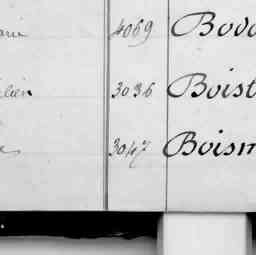 4069 Bovo
lien 3036 Boist
3047 Boism